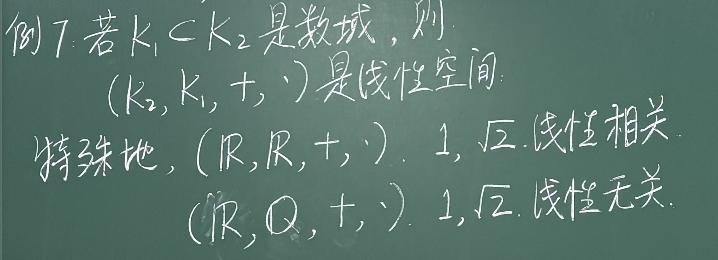 例7.若K₁⊂K₂是数域，则
(K₂,K₁,+,·)是线性空间.
特殊地，(ℝ,ℝ,+,·). 1,√2.线性相关.
(ℝ,ℚ,+,·). 1,√2.线性无关.